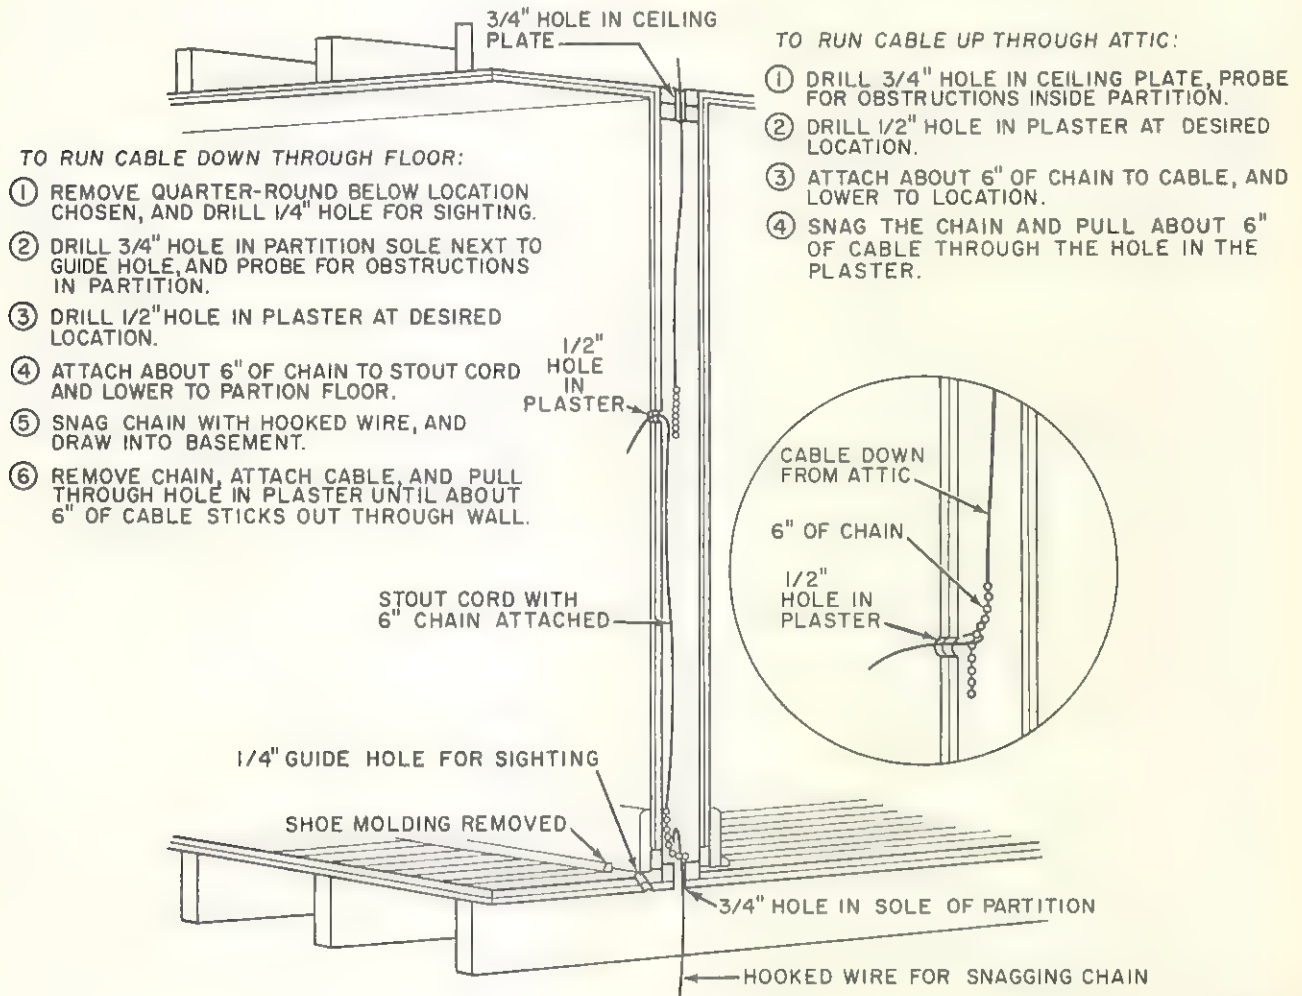 3/4" HOLE IN CEILING
PLATE
TO RUN CABLE UP THROUGH ATTIC:
① DRILL 3/4" HOLE IN CEILING PLATE, PROBE
FOR OBSTRUCTIONS INSIDE PARTITION.
② DRILL 1/2" HOLE IN PLASTER AT DESIRED
LOCATION.
③ ATTACH ABOUT 6" OF CHAIN TO CABLE, AND
LOWER TO LOCATION.
④ SNAG THE CHAIN AND PULL ABOUT 6"
OF CABLE THROUGH THE HOLE IN THE
PLASTER.
TO RUN CABLE DOWN THROUGH FLOOR:
① REMOVE QUARTER-ROUND BELOW LOCATION
CHOSEN, AND DRILL 1/4" HOLE FOR SIGHTING.
② DRILL 3/4" HOLE IN PARTITION SOLE NEXT TO
GUIDE HOLE, AND PROBE FOR OBSTRUCTIONS
IN PARTITION.
③ DRILL 1/2" HOLE IN PLASTER AT DESIRED
LOCATION.
④ ATTACH ABOUT 6" OF CHAIN TO STOUT CORD
AND LOWER TO PARTION FLOOR.
⑤ SNAG CHAIN WITH HOOKED WIRE, AND
DRAW INTO BASEMENT.
⑥ REMOVE CHAIN, ATTACH CABLE, AND PULL
THROUGH HOLE IN PLASTER UNTIL ABOUT
6" OF CABLE STICKS OUT THROUGH WALL.
1/2"
HOLE
IN
PLASTER
CABLE DOWN
FROM ATTIC
6" OF CHAIN
1/2"
HOLE IN
PLASTER
STOUT CORD WITH
6" CHAIN ATTACHED
1/4" GUIDE HOLE FOR SIGHTING
SHOE MOLDING REMOVED
3/4" HOLE IN SOLE OF PARTITION
HOOKED WIRE FOR SNAGGING CHAIN